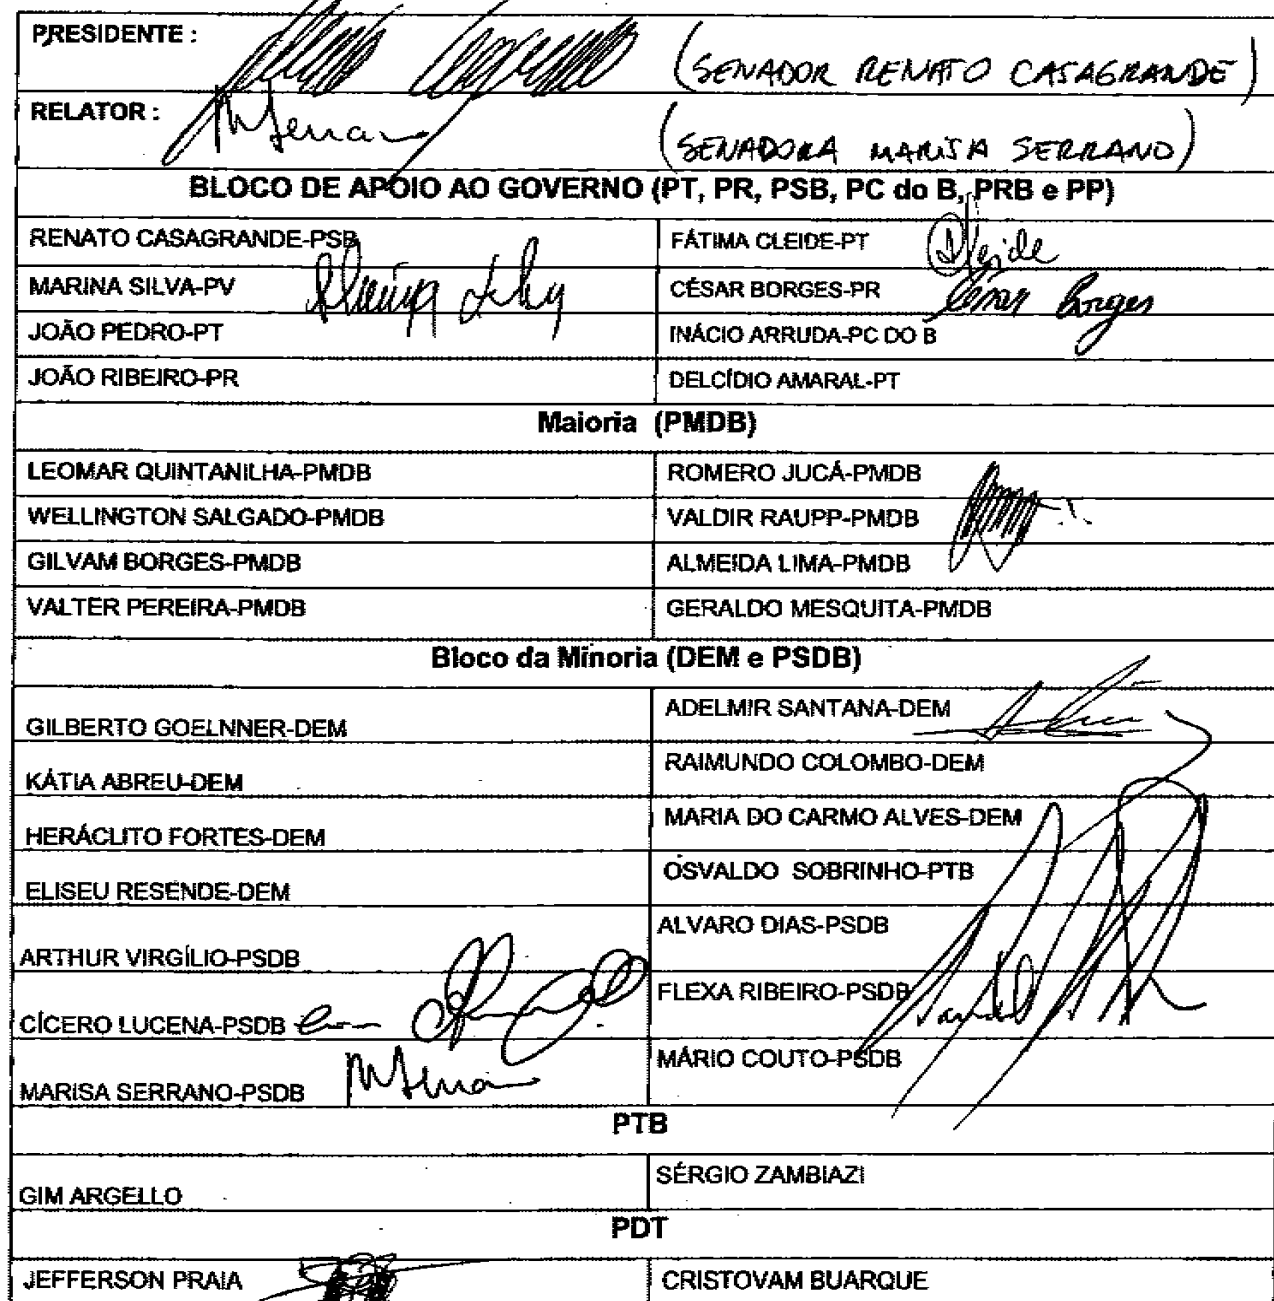 PRESIDENTE : (SENADOR RENATO CASAGRANDE)
RELATOR : MSerrano (SENADORA MARISA SERRANO)
BLOCO DE APOIO AO GOVERNO (PT, PR, PSB, PC do B, PRB e PP)
RENATO CASAGRANDE-PSB FÁTIMA CLEIDE-PT
MARINA SILVA-PV Marina Silva CÉSAR BORGES-PR César Borges
JOÃO PEDRO-PT INÁCIO ARRUDA-PC DO B
JOÃO RIBEIRO-PR DELCÍDIO AMARAL-PT
Maioria (PMDB)
LEOMAR QUINTANILHA-PMDB ROMERO JUCÁ-PMDB
WELLINGTON SALGADO-PMDB VALDIR RAUPP-PMDB
GILVAM BORGES-PMDB ALMEIDA LIMA-PMDB
VALTER PEREIRA-PMDB GERALDO MESQUITA-PMDB
Bloco da Minoria (DEM e PSDB)
GILBERTO GOELNNER-DEM ADELMIR SANTANA-DEM
KÁTIA ABREU-DEM RAIMUNDO COLOMBO-DEM
HERÁCLITO FORTES-DEM MARIA DO CARMO ALVES-DEM
ELISEU RESENDE-DEM OSVALDO SOBRINHO-PTB
ARTHUR VIRGÍLIO-PSDB ALVARO DIAS-PSDB
CÍCERO LUCENA-PSDB FLEXA RIBEIRO-PSDB
MARISA SERRANO-PSDB MSerrano MÁRIO COUTO-PSDB
PTB
GIM ARGELLO SÉRGIO ZAMBIAZI
PDT
JEFFERSON PRAIA CRISTOVAM BUARQUE